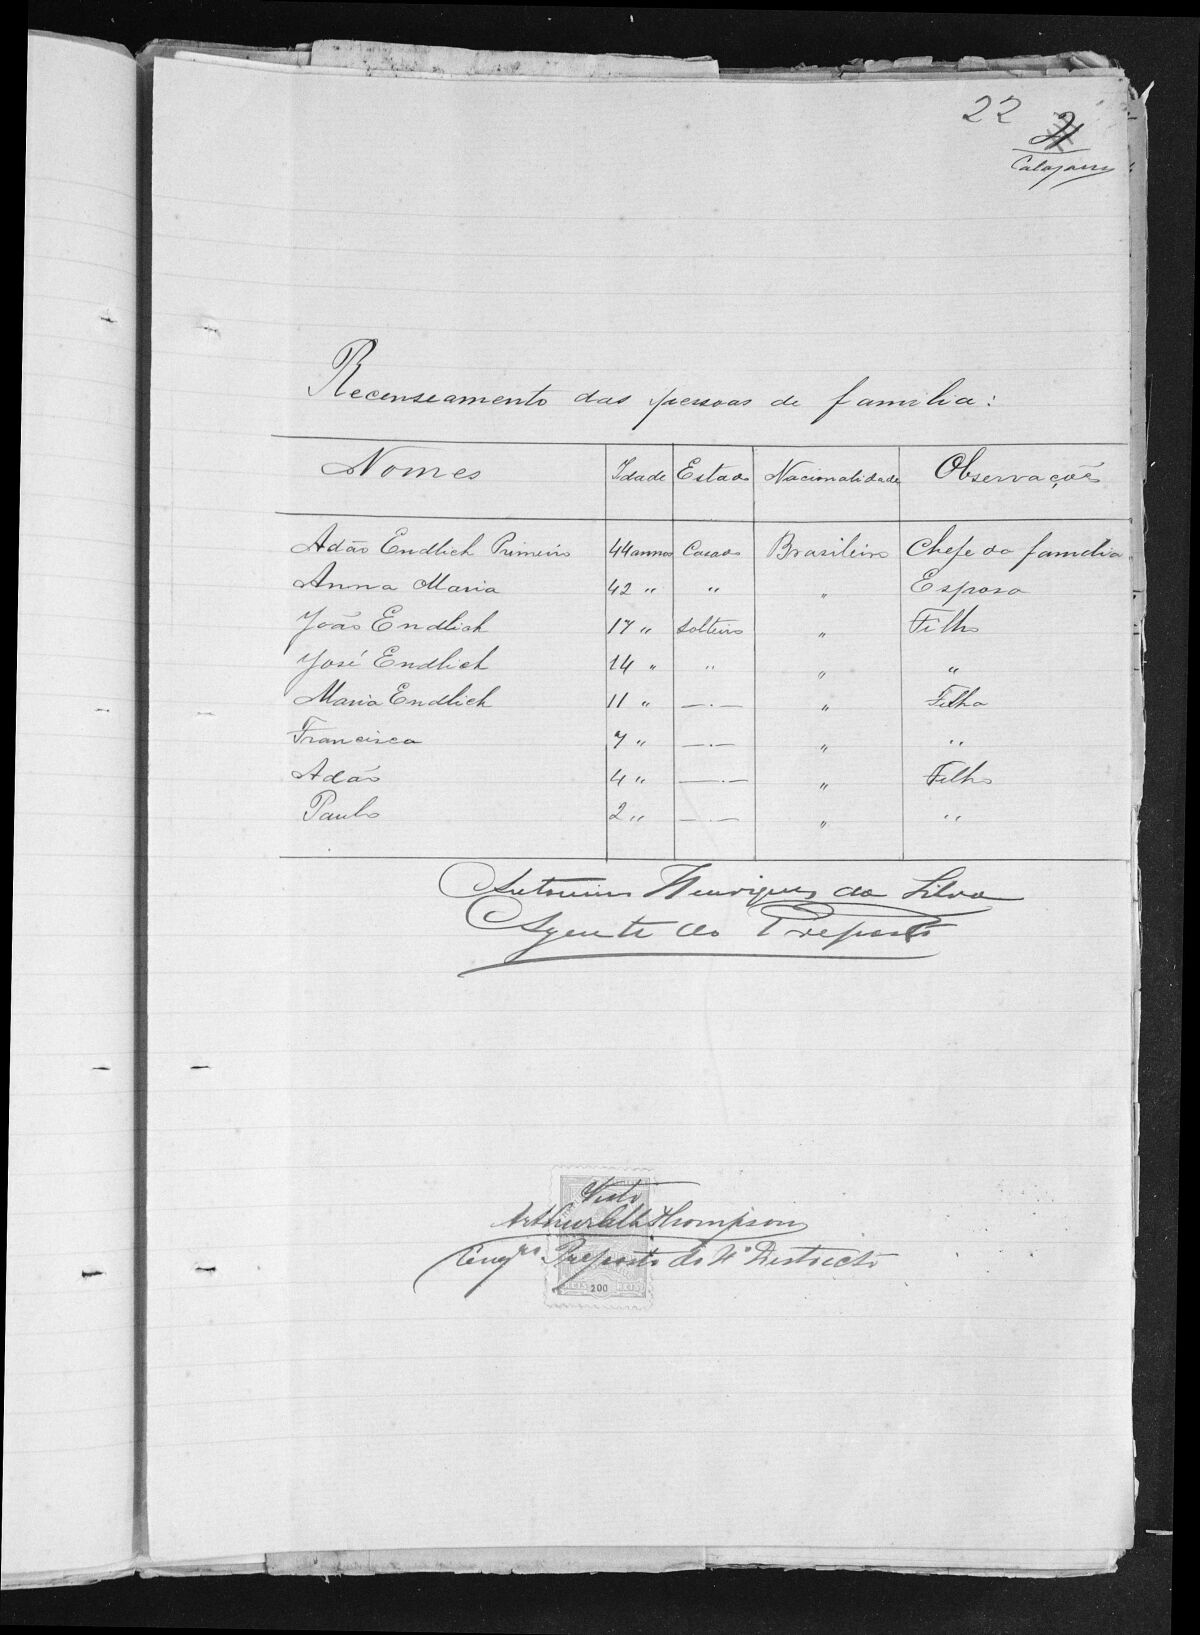 22
21
Calazans
Recenseamento das pessoas de familia:
Nomes Idade Estado Nacionalidade Observações
Adão Endlich Primeiro 44 annos Casado Brasileiro Chefe da familia
Anna Maria 42 " " " Esposa
João Endlich 17 " Solteiro " Filho
José Endlich 14 " " " "
Maria Endlich 11 " —.— " Filha
Francisca 7 " —.— " "
Adão 4 " —.— " Filho
Paulo 2 " —.— " "
Antonio Henriques da Silva
Agente do Preposto
Visto
Arthur Thompson
Engro Preposto do 4º Districto
200